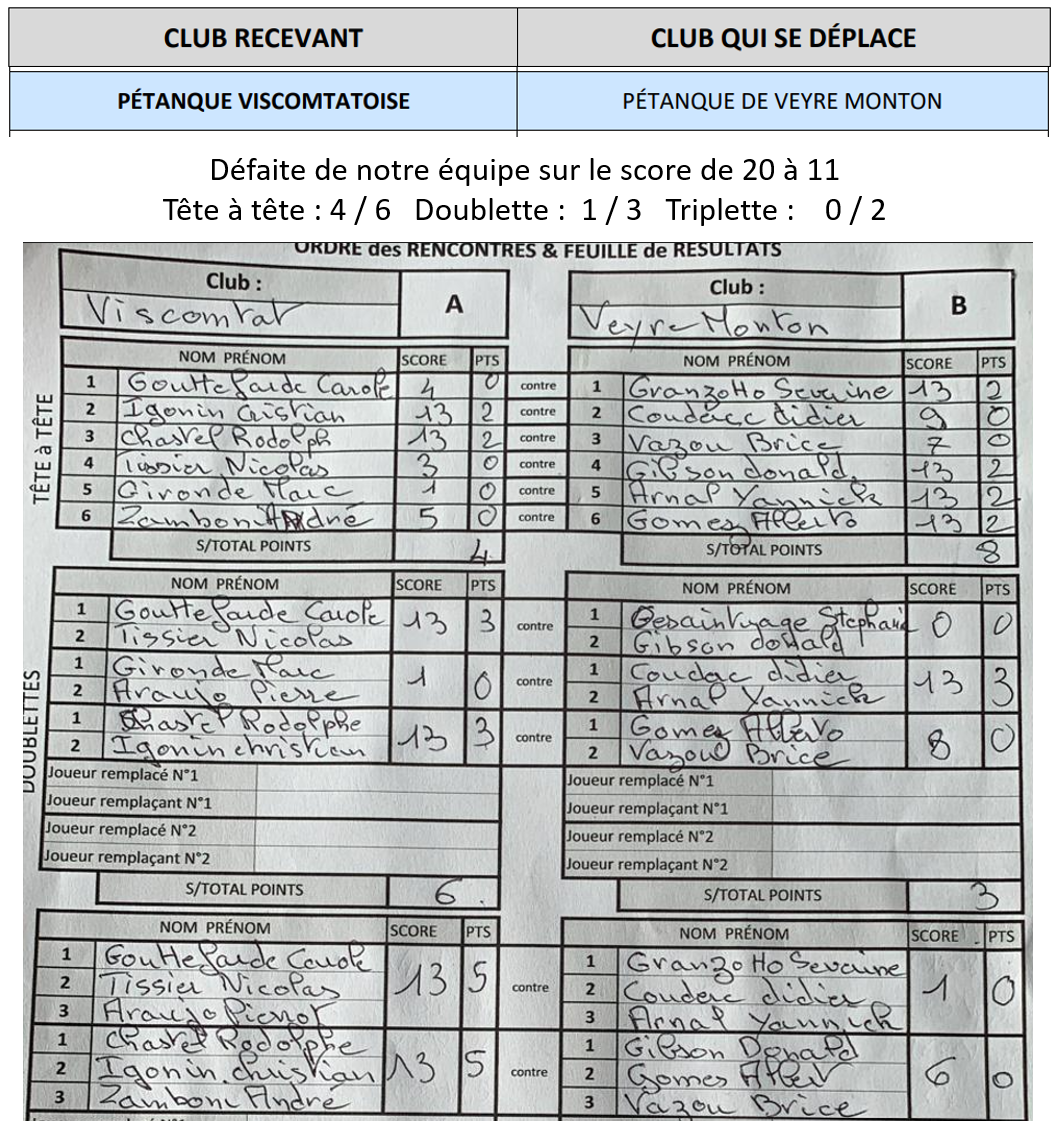 CLUB RECEVANT CLUB QUI SE DÉPLACE
PÉTANQUE VISCOMTATOISE PÉTANQUE DE VEYRE MONTON
Défaite de notre équipe sur le score de 20 à 11
Tête à tête : 4 / 6 Doublette : 1 / 3 Triplette : 0 / 2
ORDRE des RENCONTRES & FEUILLE de RESULTATS
Club : A Club : B
Viscomtat Veyre-Monton
TÊTE à TÊTE
NOM PRÉNOM SCORE PTS NOM PRÉNOM SCORE PTS
1 Gouttefarde Carole 4 0 contre 1 Granzotto Severine 13 2
2 Igonin Cristian 13 2 contre 2 Couderc didier 9 0
3 Chastel Rodolph 13 2 contre 3 Vazou Brice 7 0
4 Tissier Nicolas 3 0 contre 4 Gibson donald 13 2
5 Gironde Marc 1 0 contre 5 Arnal Yannick 13 2
6 Zamboni André 5 0 contre 6 Gomes Alberto 13 2
S/TOTAL POINTS 4 S/TOTAL POINTS 8
DOUBLETTES
NOM PRÉNOM SCORE PTS NOM PRÉNOM SCORE PTS
1 Gouttefarde Carole 13 3 contre 1 Stephani 0 0
2 Tissier Nicolas 2 Gibson donald
1 Gironde Marc 1 0 contre 1 Coudac didier 13 3
2 Araujo Pierre 2 Arnal Yannick
1 Chastel Rodolphe 13 3 contre 1 Gomes Alberto 8 0
2 Igonin christian 2 Vazou Brice
Joueur remplacé N°1 Joueur remplacé N°1
Joueur remplaçant N°1 Joueur remplaçant N°1
Joueur remplacé N°2 Joueur remplacé N°2
Joueur remplaçant N°2 Joueur remplaçant N°2
S/TOTAL POINTS 6 S/TOTAL POINTS 3
NOM PRÉNOM SCORE PTS NOM PRÉNOM SCORE PTS
1 Gouttefarde Carole 13 5 contre 1 Granzotto Severine 1 0
2 Tissier Nicolas 2 Couderc didier
3 Araujo Pierrot 3 Arnal Yannick
1 Chastel Rodolphe 13 5 contre 1 Gibson Donald 6 0
2 Igonin christian 2 Gomes Albert
3 Zamboni André 3 Vazou Brice